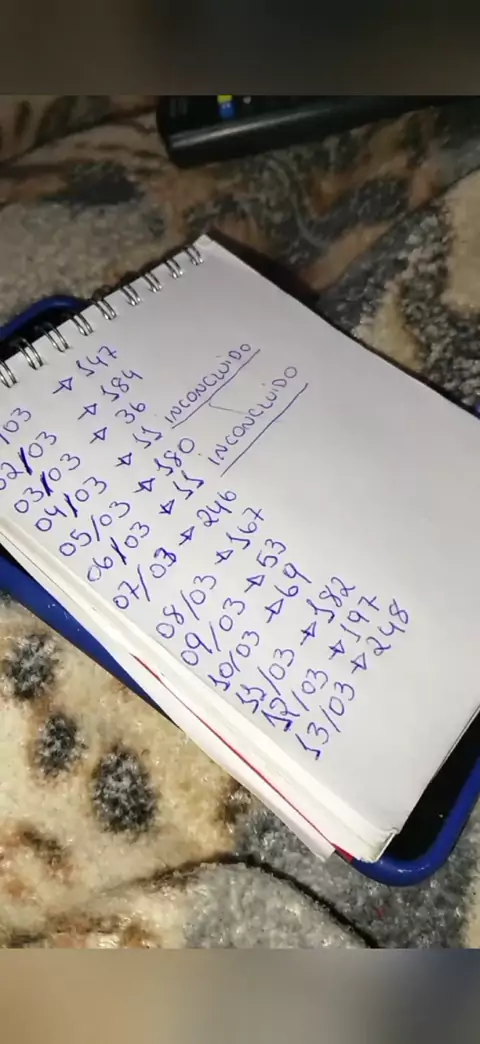 /03 → 147
02/03 → 184
03/03 → 36
04/03 → 11 INCONCLUIDO
05/03 → 180
06/03 → 11 INCONCLUIDO
07/03 → 246
08/03 → 167
09/03 → 53
10/03 → 69
11/03 → 182
12/03 → 197
13/03 → 248